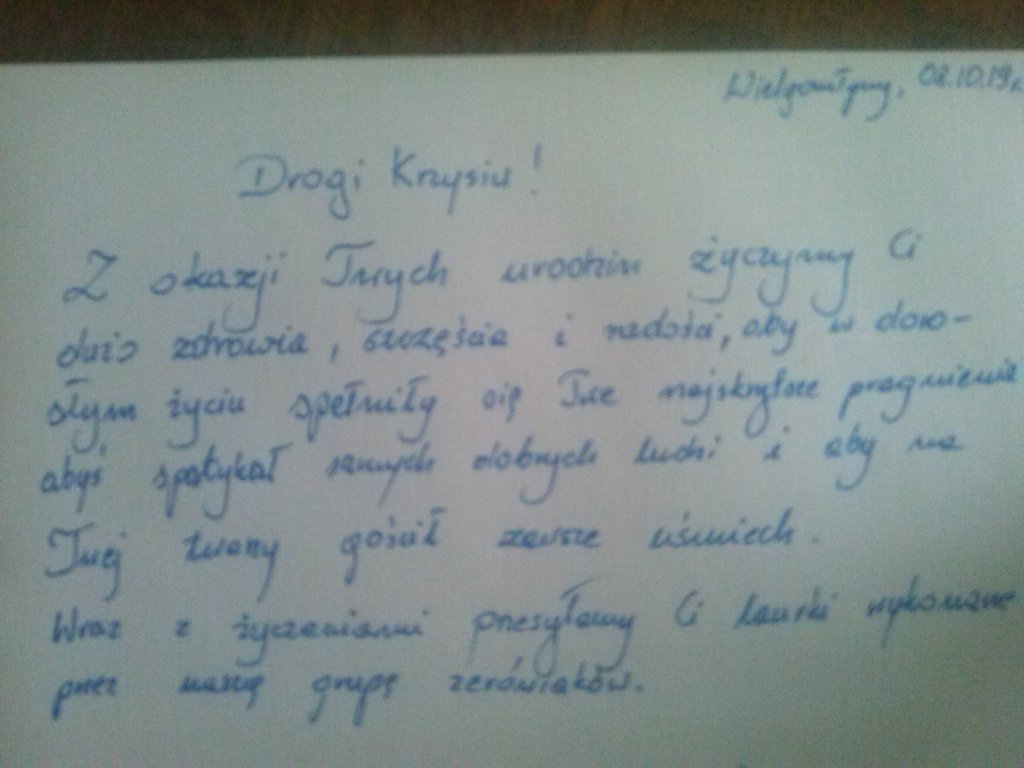 Wielgomłyny, 02.10.19r.
Drogi Krzysiu!
Z okazji Twych urodzin życzymy Ci
dużo zdrowia, szczęścia i radości, aby w doro-
słym życiu spełniły się Twe najskrytsze pragnienia
abyś spotykał samych dobrych ludzi i aby na
Twej twarzy gościł zawsze uśmiech.
Wraz z życzeniami przesyłamy Ci laurki wykonane
przez naszą grupę zerówiaków.